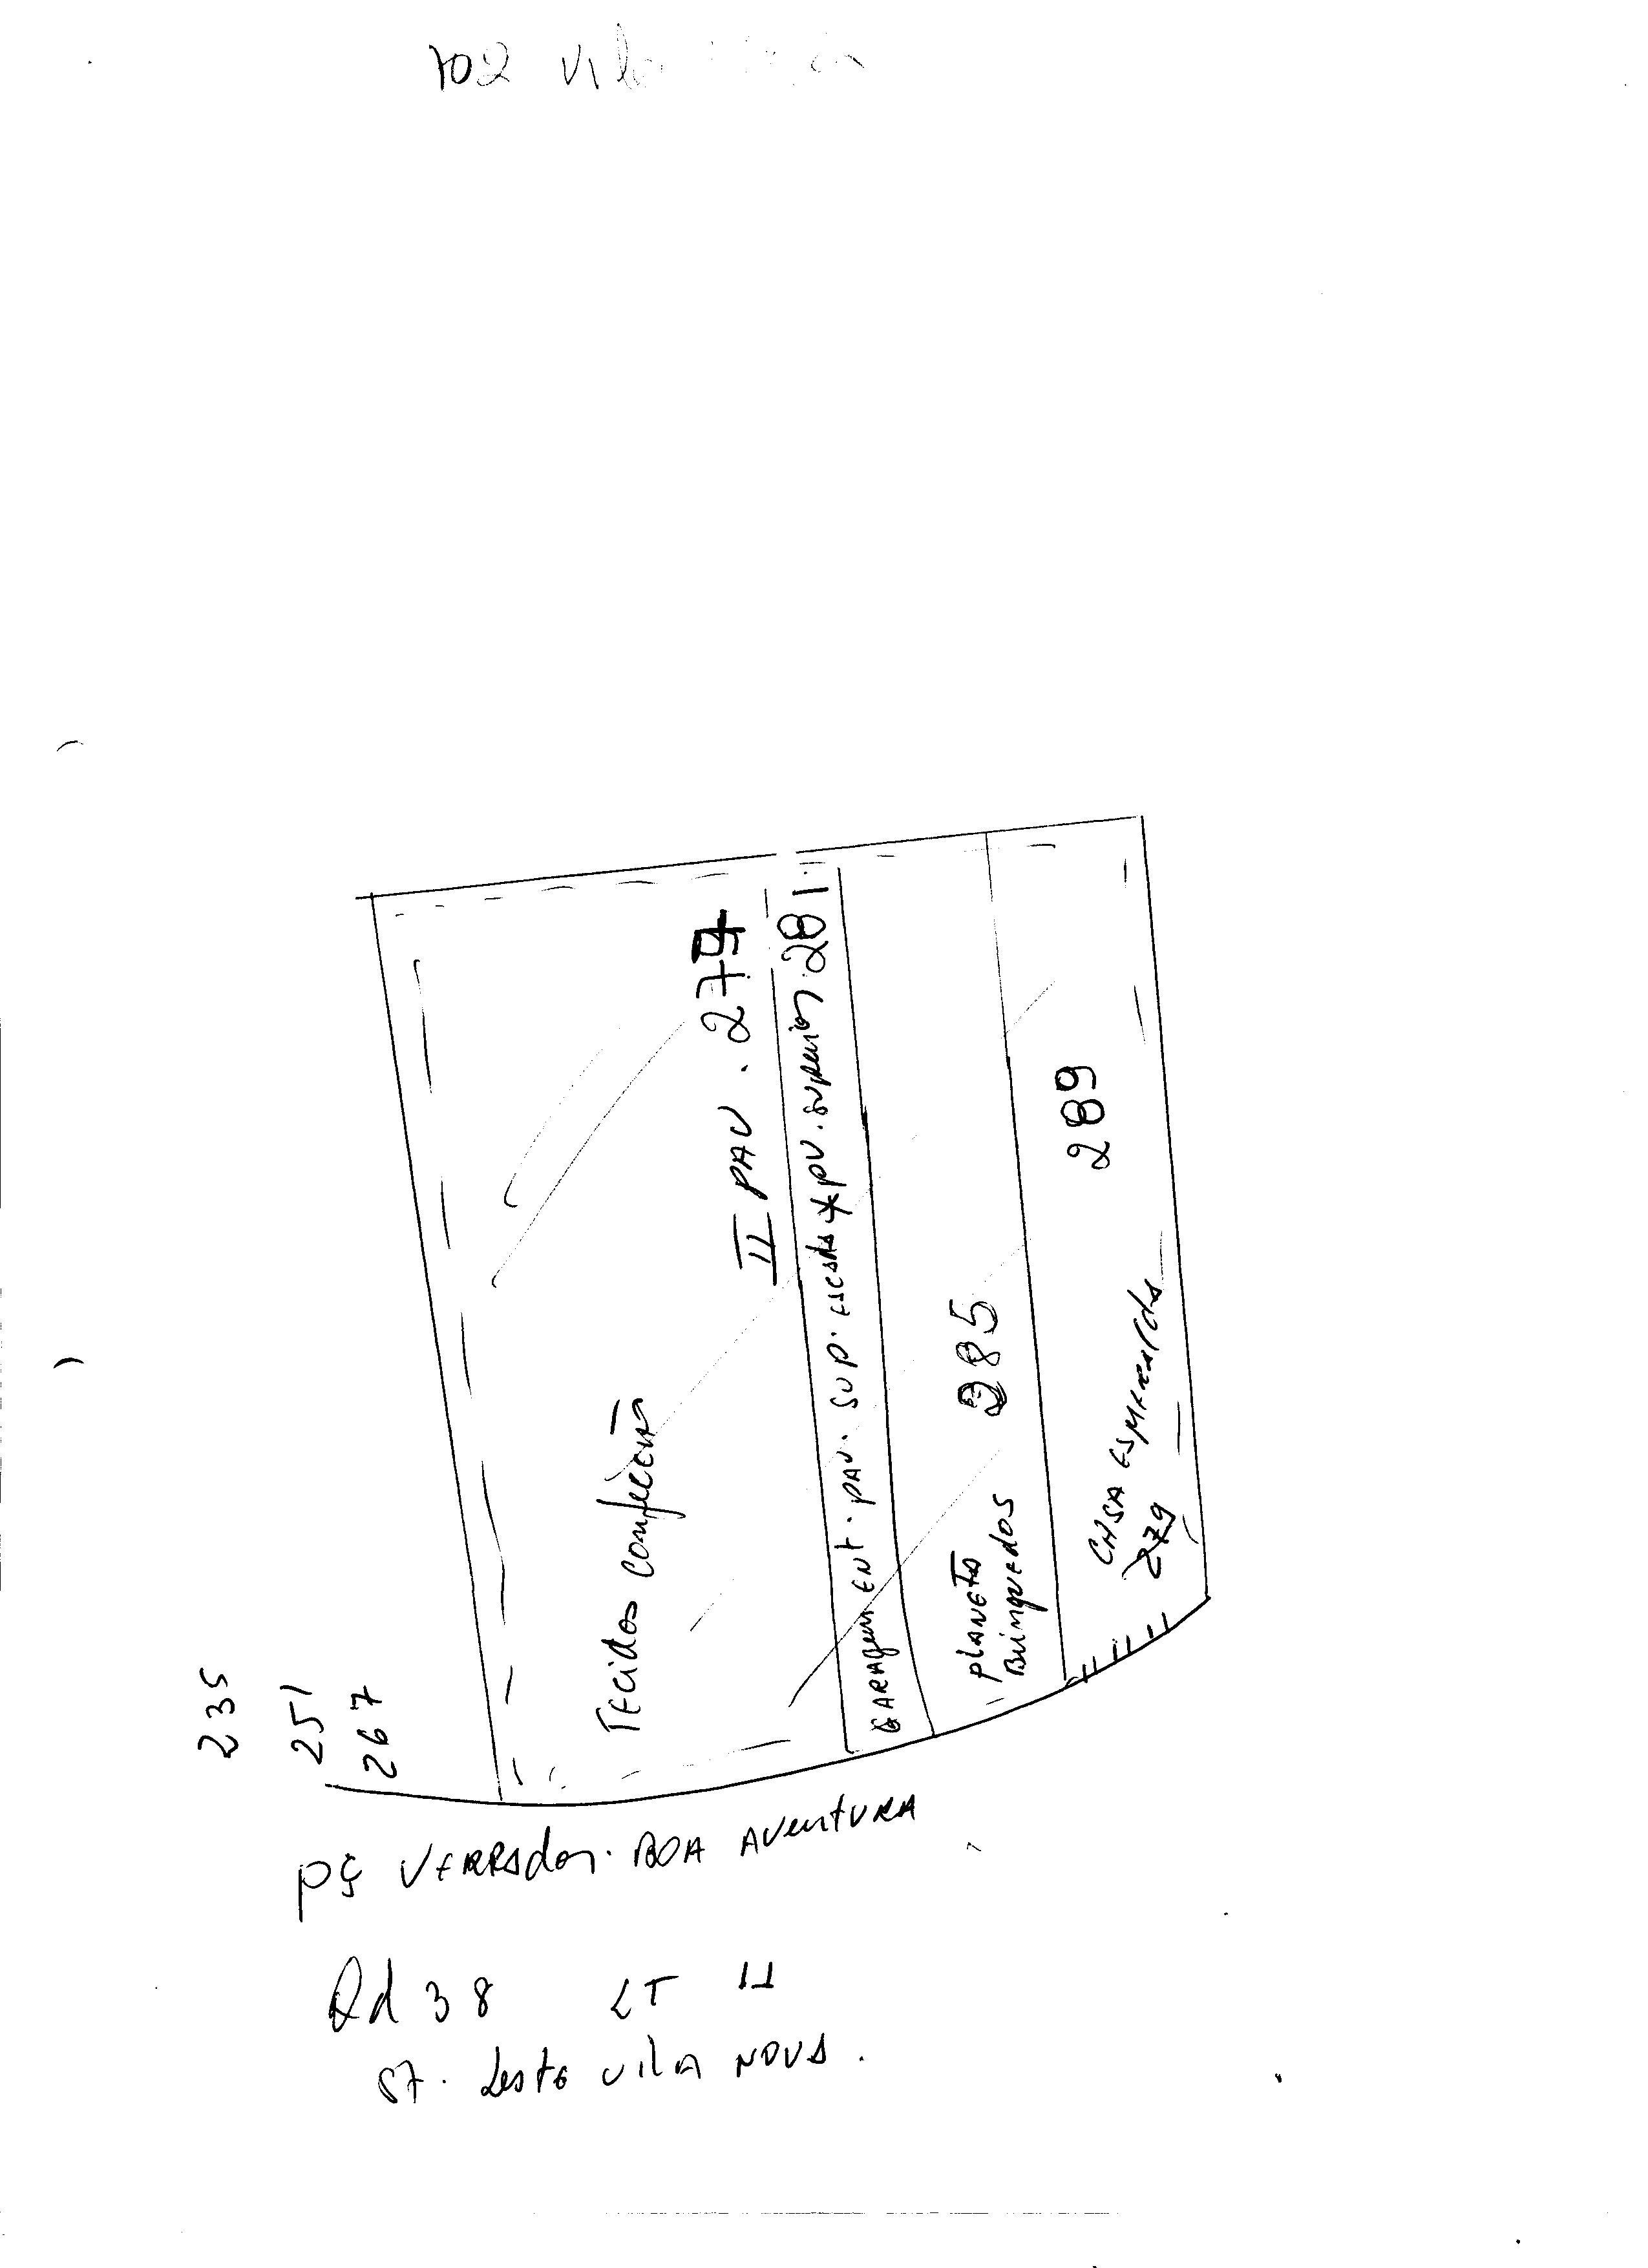 102 Vila
II PAV. 279
Tecidos confecção
GARAgem ENt. PAV. SUP. Escada * pv. superior. 281.
planeta
Brinquedos
285
289
CASA Esmeralda
279
235
251
267
pç VEREAdor. BOA AventURA
Qd 38 LT 11
ST. Leste vila NOVA.